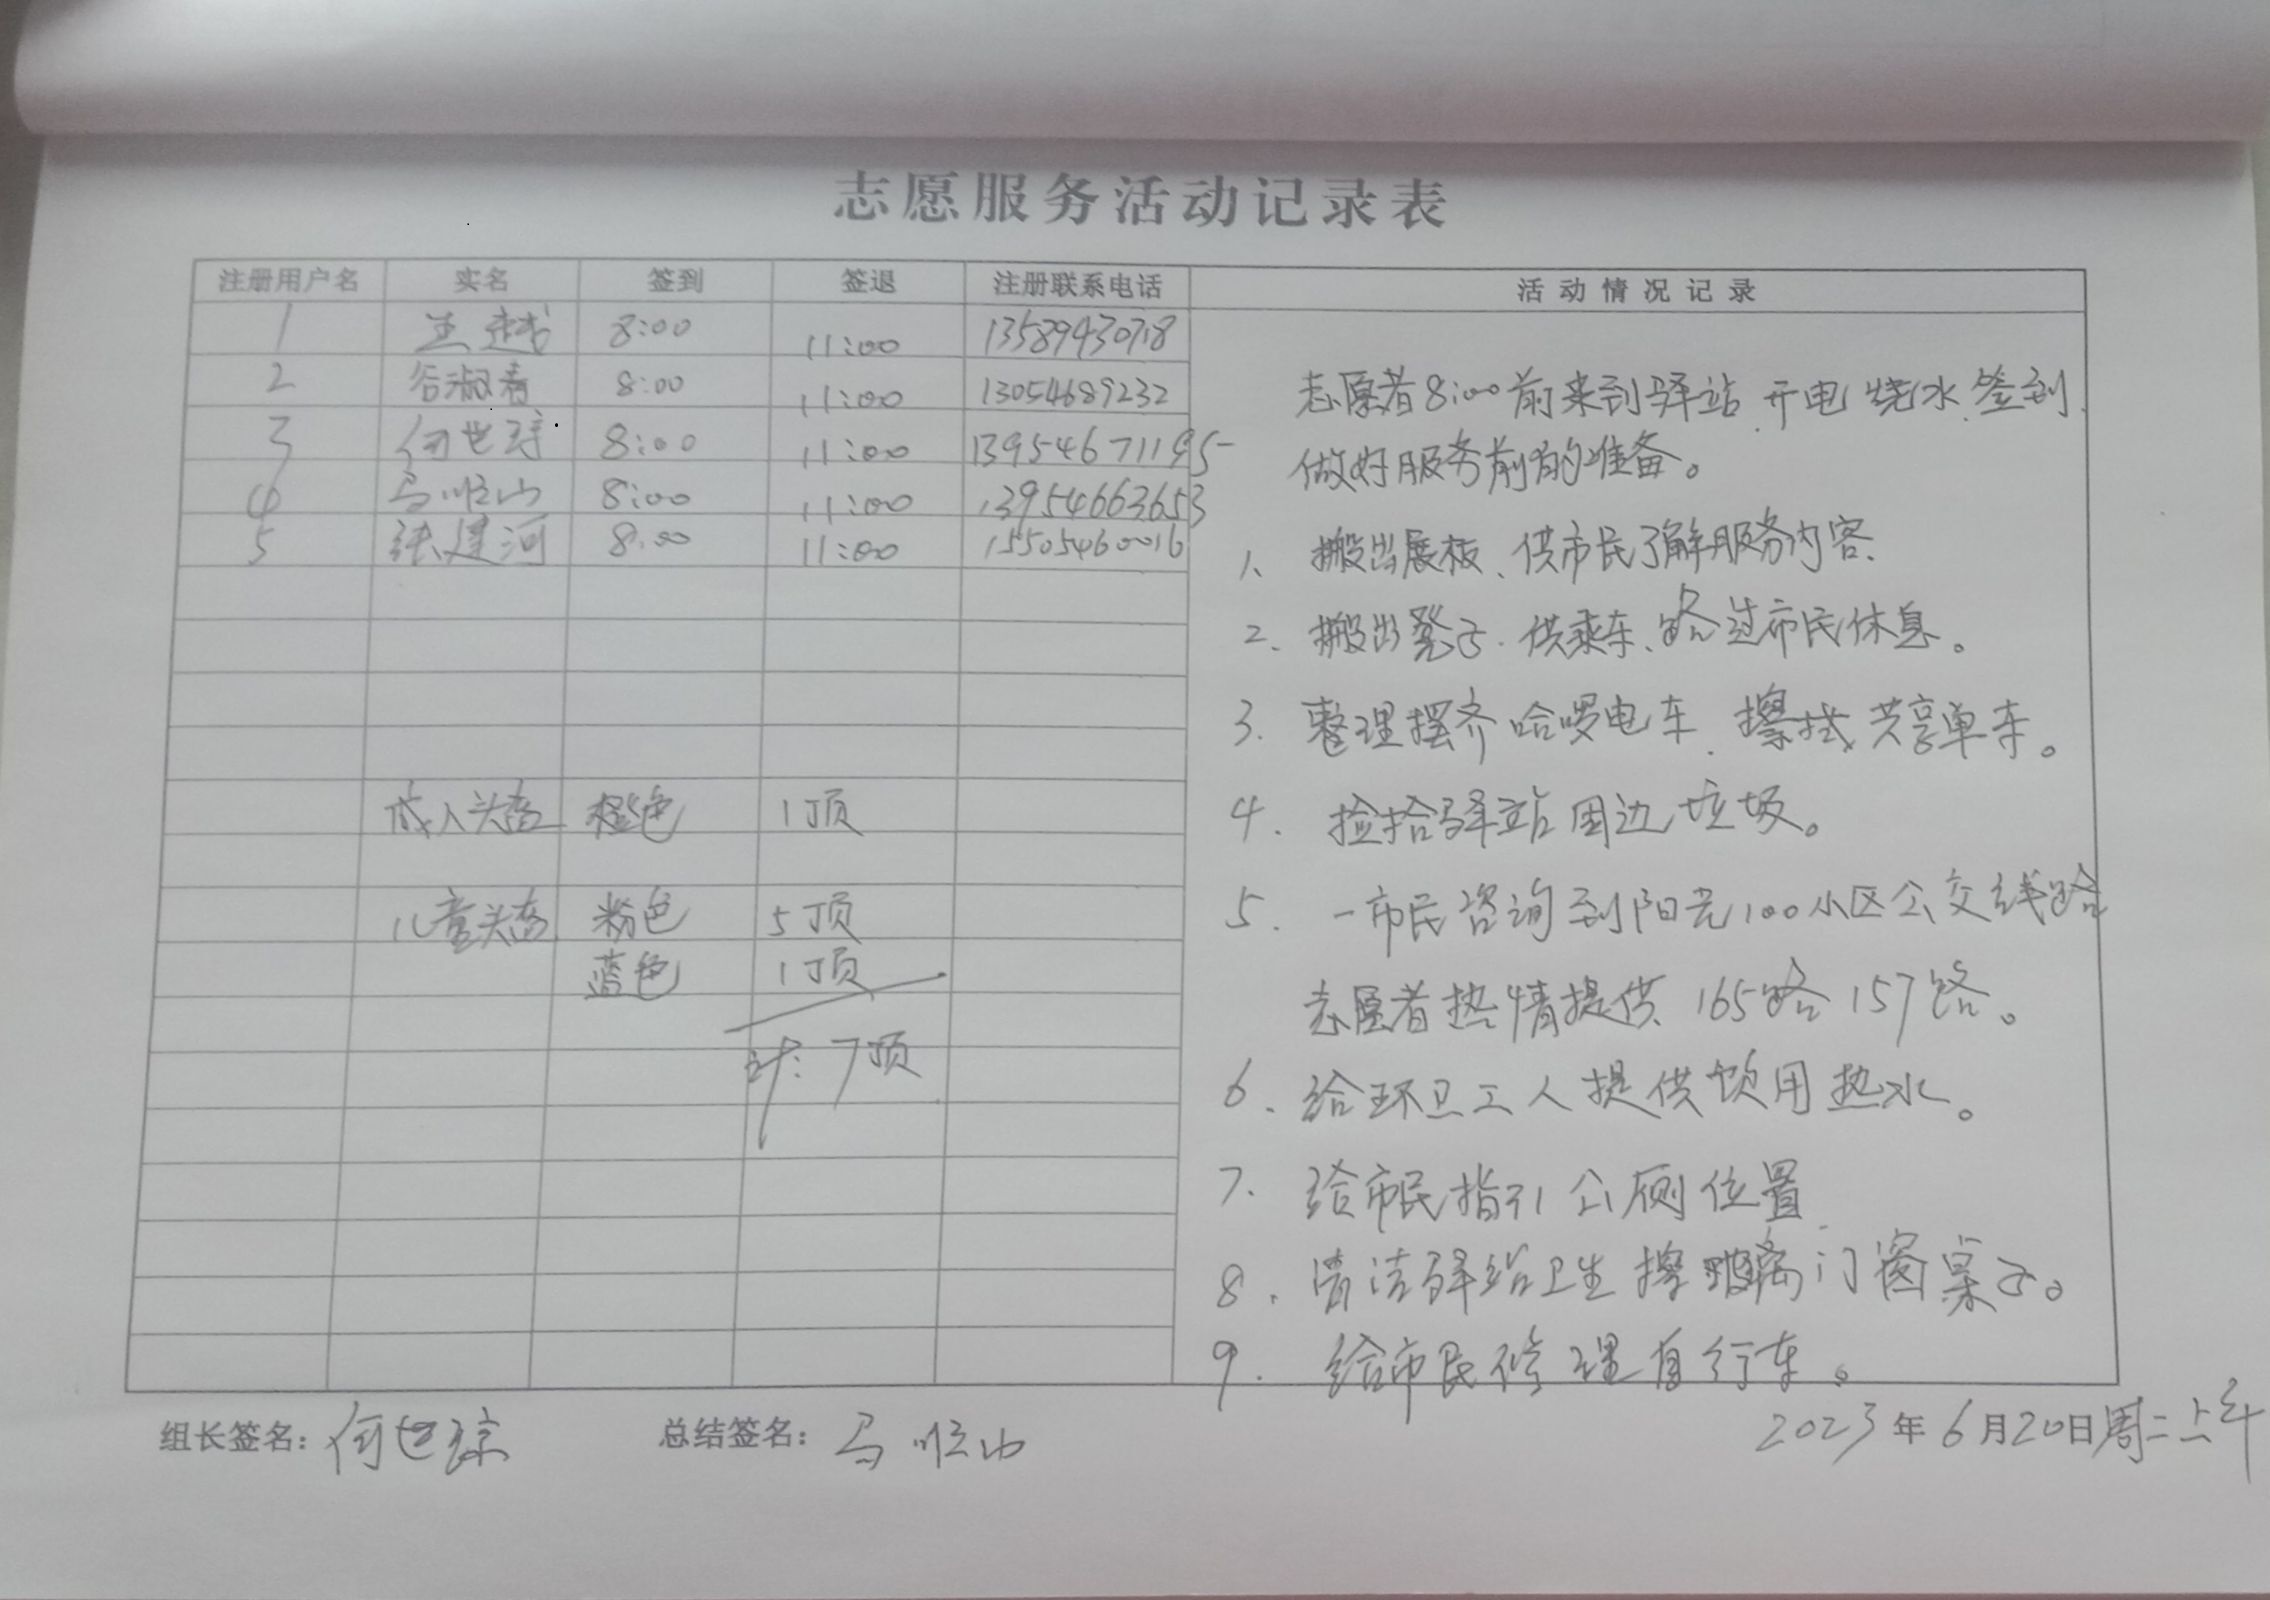 志愿服务活动记录表
注册用户名 实名 签到 签退 注册联系电话 活动情况记录
1 王越 8:00 11:00 13589430718
2 谷淑青 8:00 11:00 13054689232
3 何世琼 8:00 11:00 13954671195
4 马顺山 8:00 11:00 13954663653
5 张建河 8:00 11:00 15505460016
成人头盔 橙色 1顶
儿童头盔 粉色 5顶
蓝色 1顶
计:7顶
志愿者8:00前来到驿站、开电烧水、签到、
做好服务前的准备。
1、搬出展板、供市民了解服务内容、
2、搬出凳子、供乘车、路过市民休息。
3. 整理摆齐哈啰电车、擦拭共享单车。
4. 捡拾驿站周边垃圾。
5. 一市民咨询到阳光100小区公交线路
志愿者热情提供165路157路。
6. 给环卫工人提供饮用热水。
7. 给市民指引公厕位置、
8. 清洁驿站卫生擦玻璃门窗桌子。
9. 给市民修理自行车。
组长签名:何世琼 总结签名:马顺山 2023年6月20日周二上午